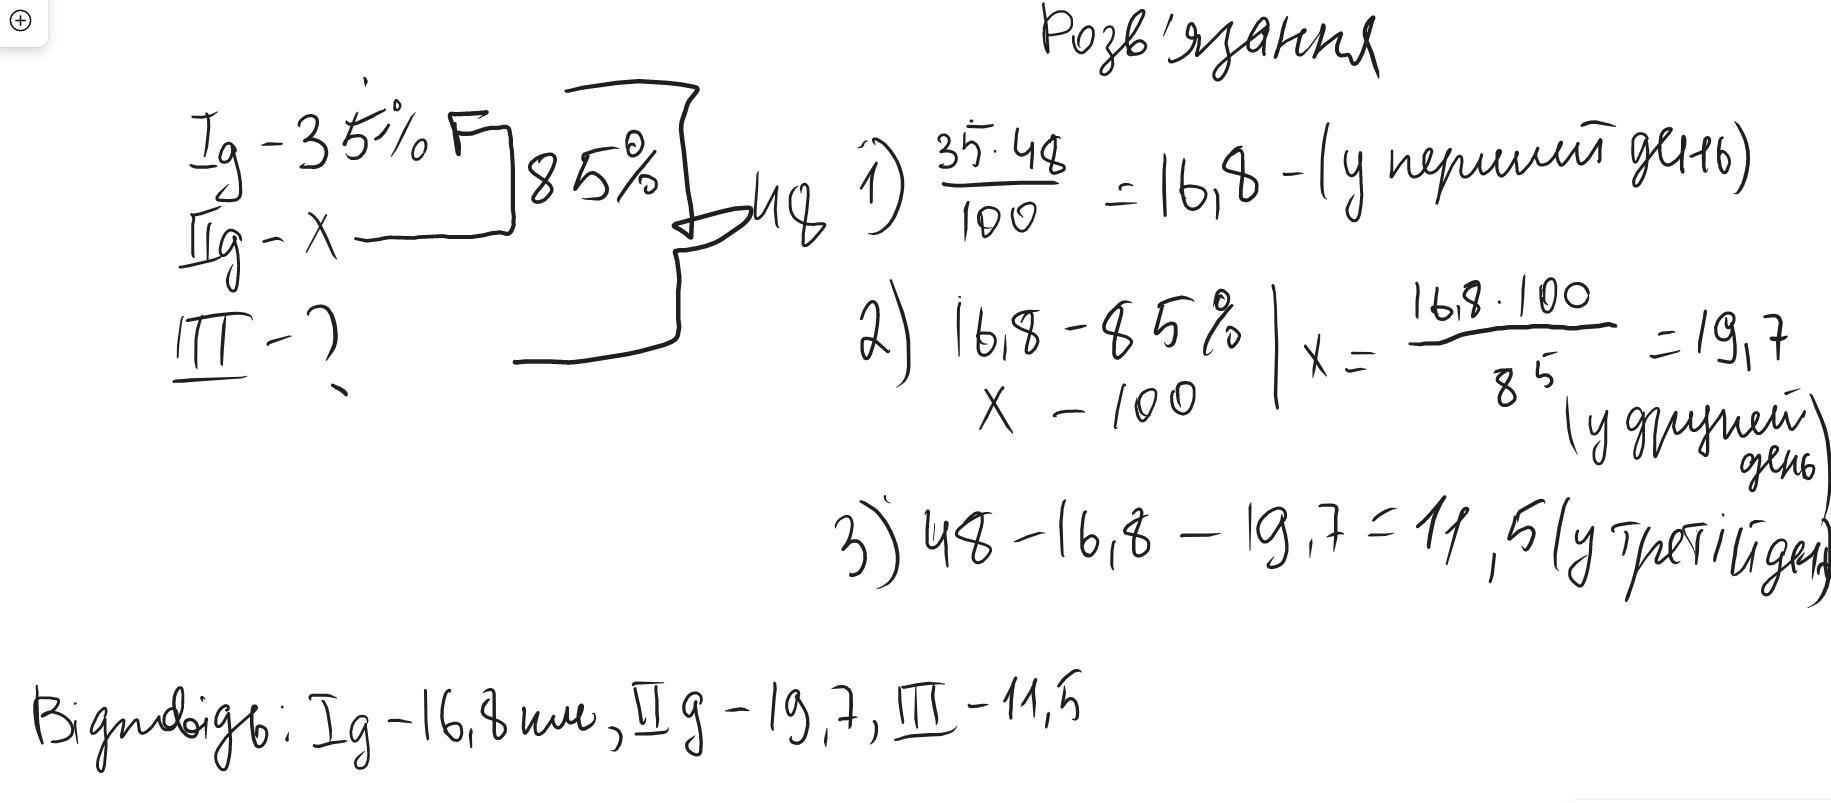 Розв'язання
Iд - 35% 85% 48
IIд - x
III - ?
1) 35·48/100 = 16,8 - (у перший день)
2) 16,8 - 85% | x = 16,8·100/85 = 19,7
x - 100
(у другий день)
3) 48 - 16,8 - 19,7 = 11,5 (у третій день)
Відповідь: Iд - 16,8 км, IIд - 19,7, III - 11,5